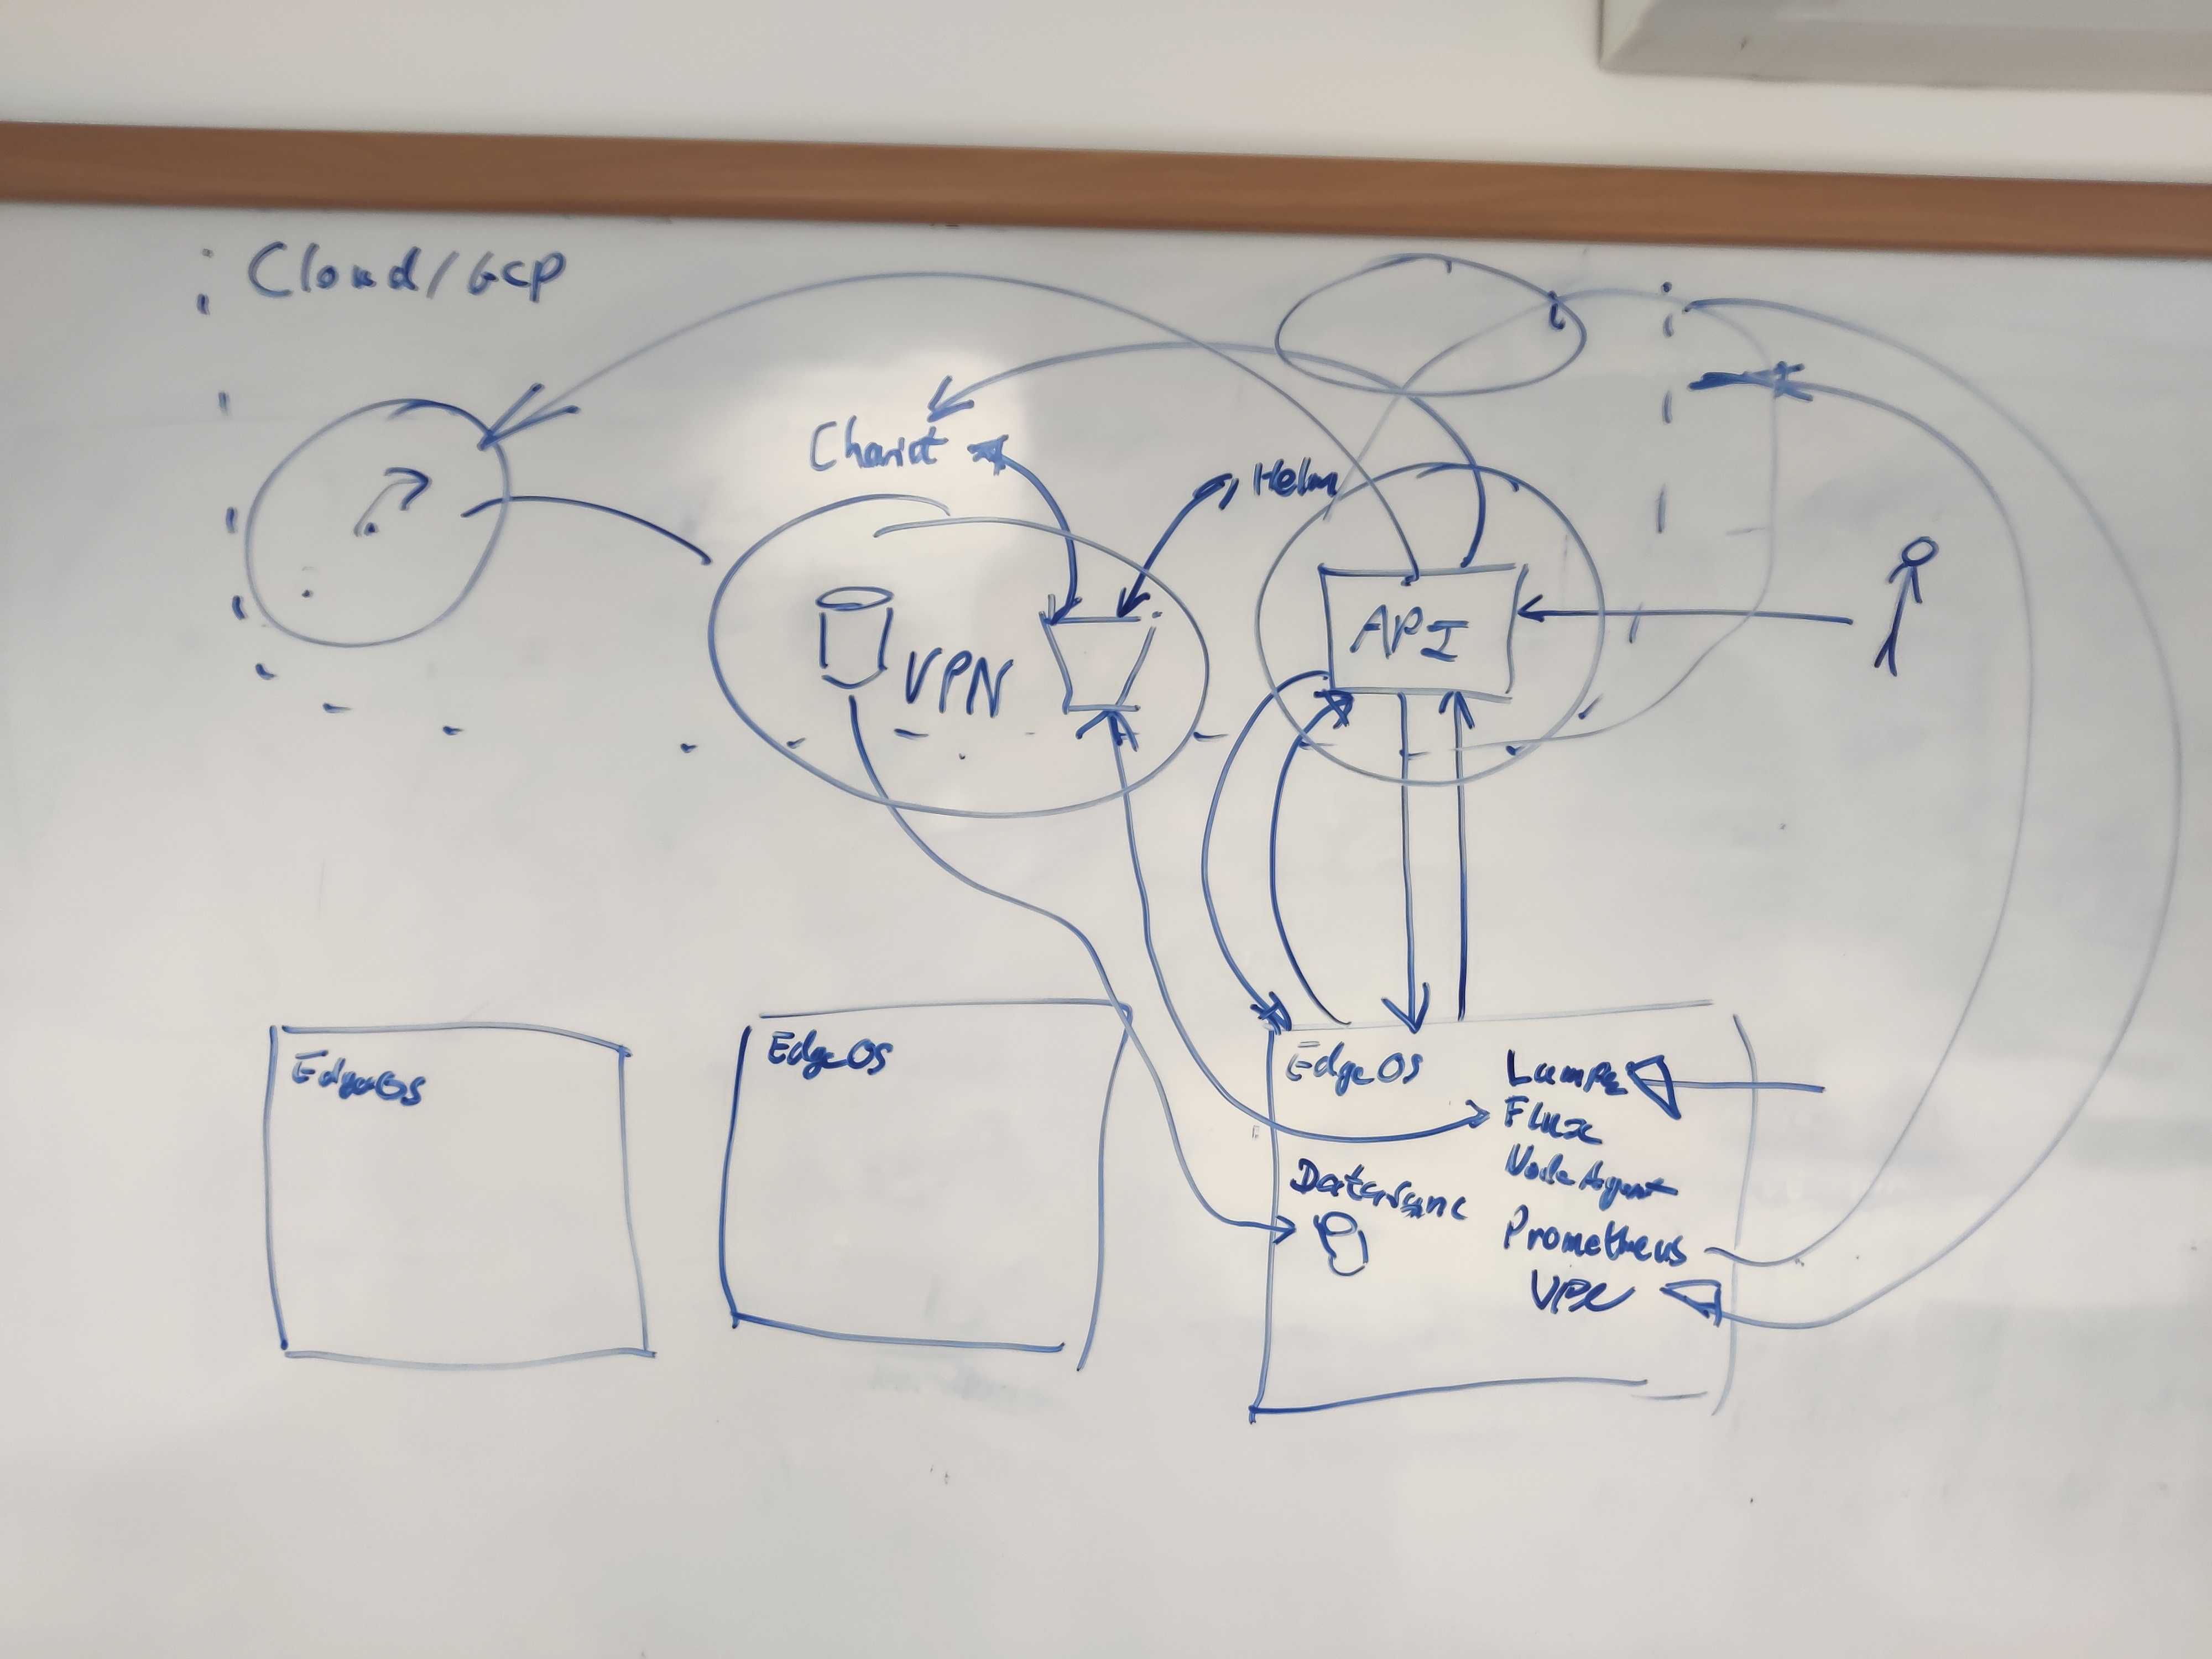 Cloud/GCP
?
Chariot
Helm
VPN
API
EdgeOS
EdgeOS
EdgeOS
Flux
Node Agent
Datasync
Prometheus